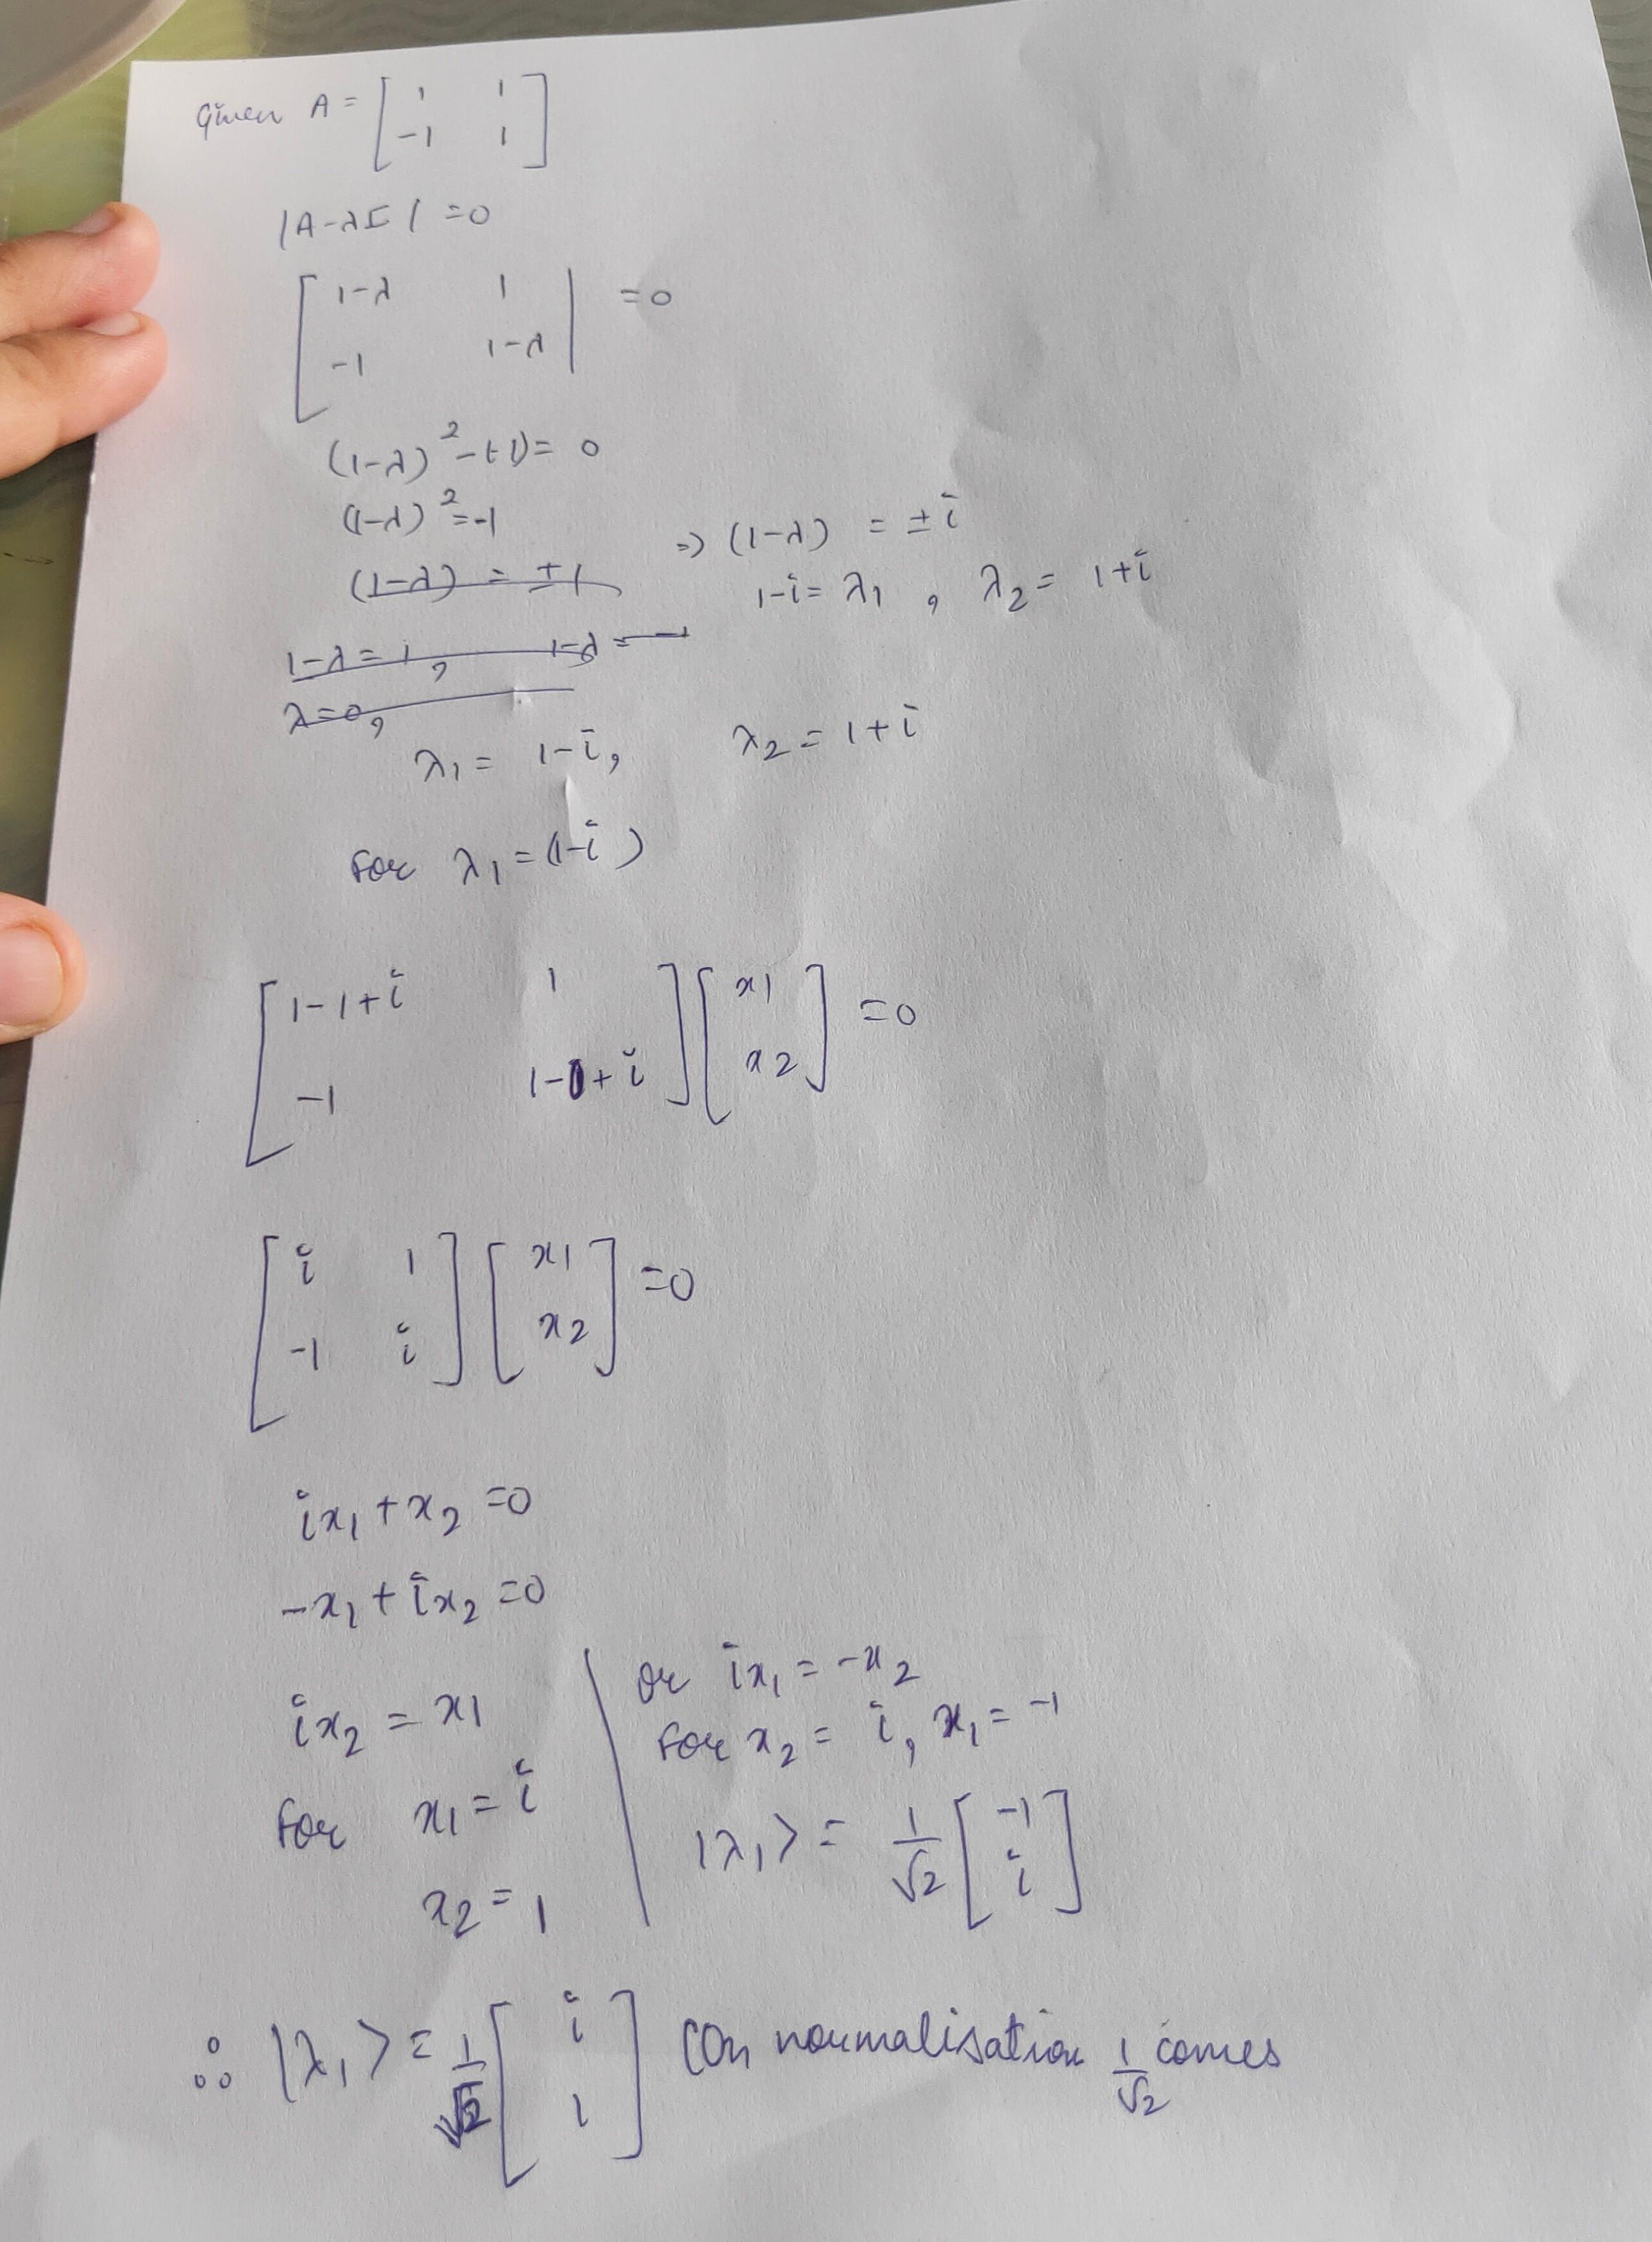 Given A = [ 1 1
-1 1 ]
|A-λI| = 0
[ 1-λ 1
-1 1-λ | = 0
(1-λ)² - (-1) = 0
(1-λ)² = -1
(1-λ) = ±1
1-λ = 1, 1-λ = -1
λ=0,
=> (1-λ) = ±i
1-i = λ1 , λ2 = 1+i
λ1 = 1-i, λ2 = 1+i
For λ1 = (1-i)
[ 1-1+i 1
-1 1-1+i ] [ x1
x2 ] = 0
[ i 1
-1 i ] [ x1
x2 ] = 0
ix1 + x2 = 0
-x1 + ix2 = 0
ix2 = x1
For x1 = i
x2 = 1
or ix1 = -x2
For x2 = i, x1 = -1
|λ1> = 1/√2 [ -1
i ]
∴ |λ1> = 1/√2 [ i
1 ] (On normalisation 1/√2 comes